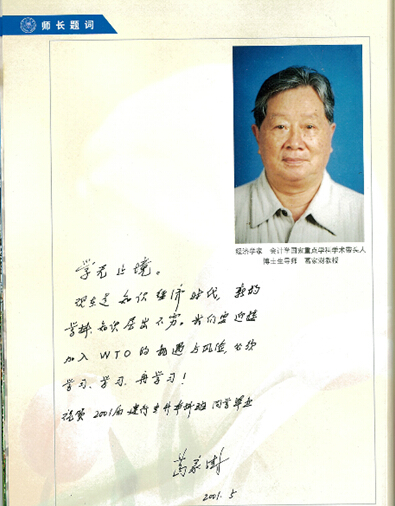 师长题词
经济学家 会计学国家重点学科学术带头人
博士生导师 葛家澍教授
学无止境。
现在是知识经济时代,新的
学科、知识层出不穷。我们要迎接
加入WTO的机遇与风险,必须
学习、学习、再学习!
2001届建行专升本科班同学毕业
葛家澍
2001.5